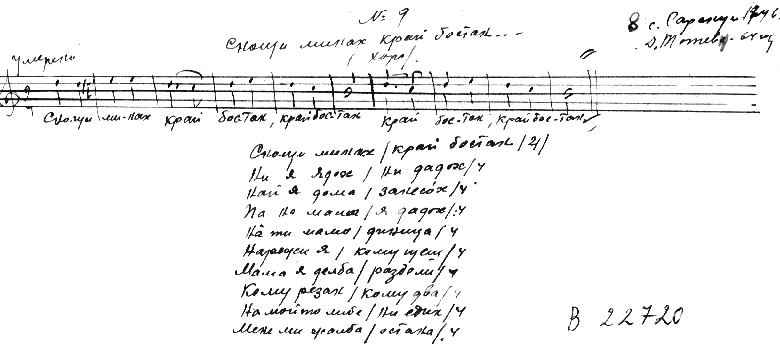 № 9
8 с.
Снощи минах край бостан...
Д. Тотева - 64 г.
/хоро/
умерено
Снощи ми-нах край бостан, край бостан край бос-тан, край бос-тан
Снощи минах / край бостан / 2 /
Ни я ядох / ни дадох / ч
Най я дома / занесох / ч
Па на мама / я дадох / ч
На ти мамо / диница / ч
Нарежи я / кому
Мама я делба / раздели / ч
Кому резан / кому два / ч
На мойто либе / ни един / ч
Мене ми жалба / остана /. ч
В 22720